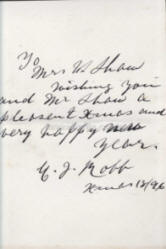 To
Mrs V. Shaw
Wishing you
and Mr Shaw a
pleasent Xmas and
very happy new
Year.
G. J. Robb
Xmas 12/96